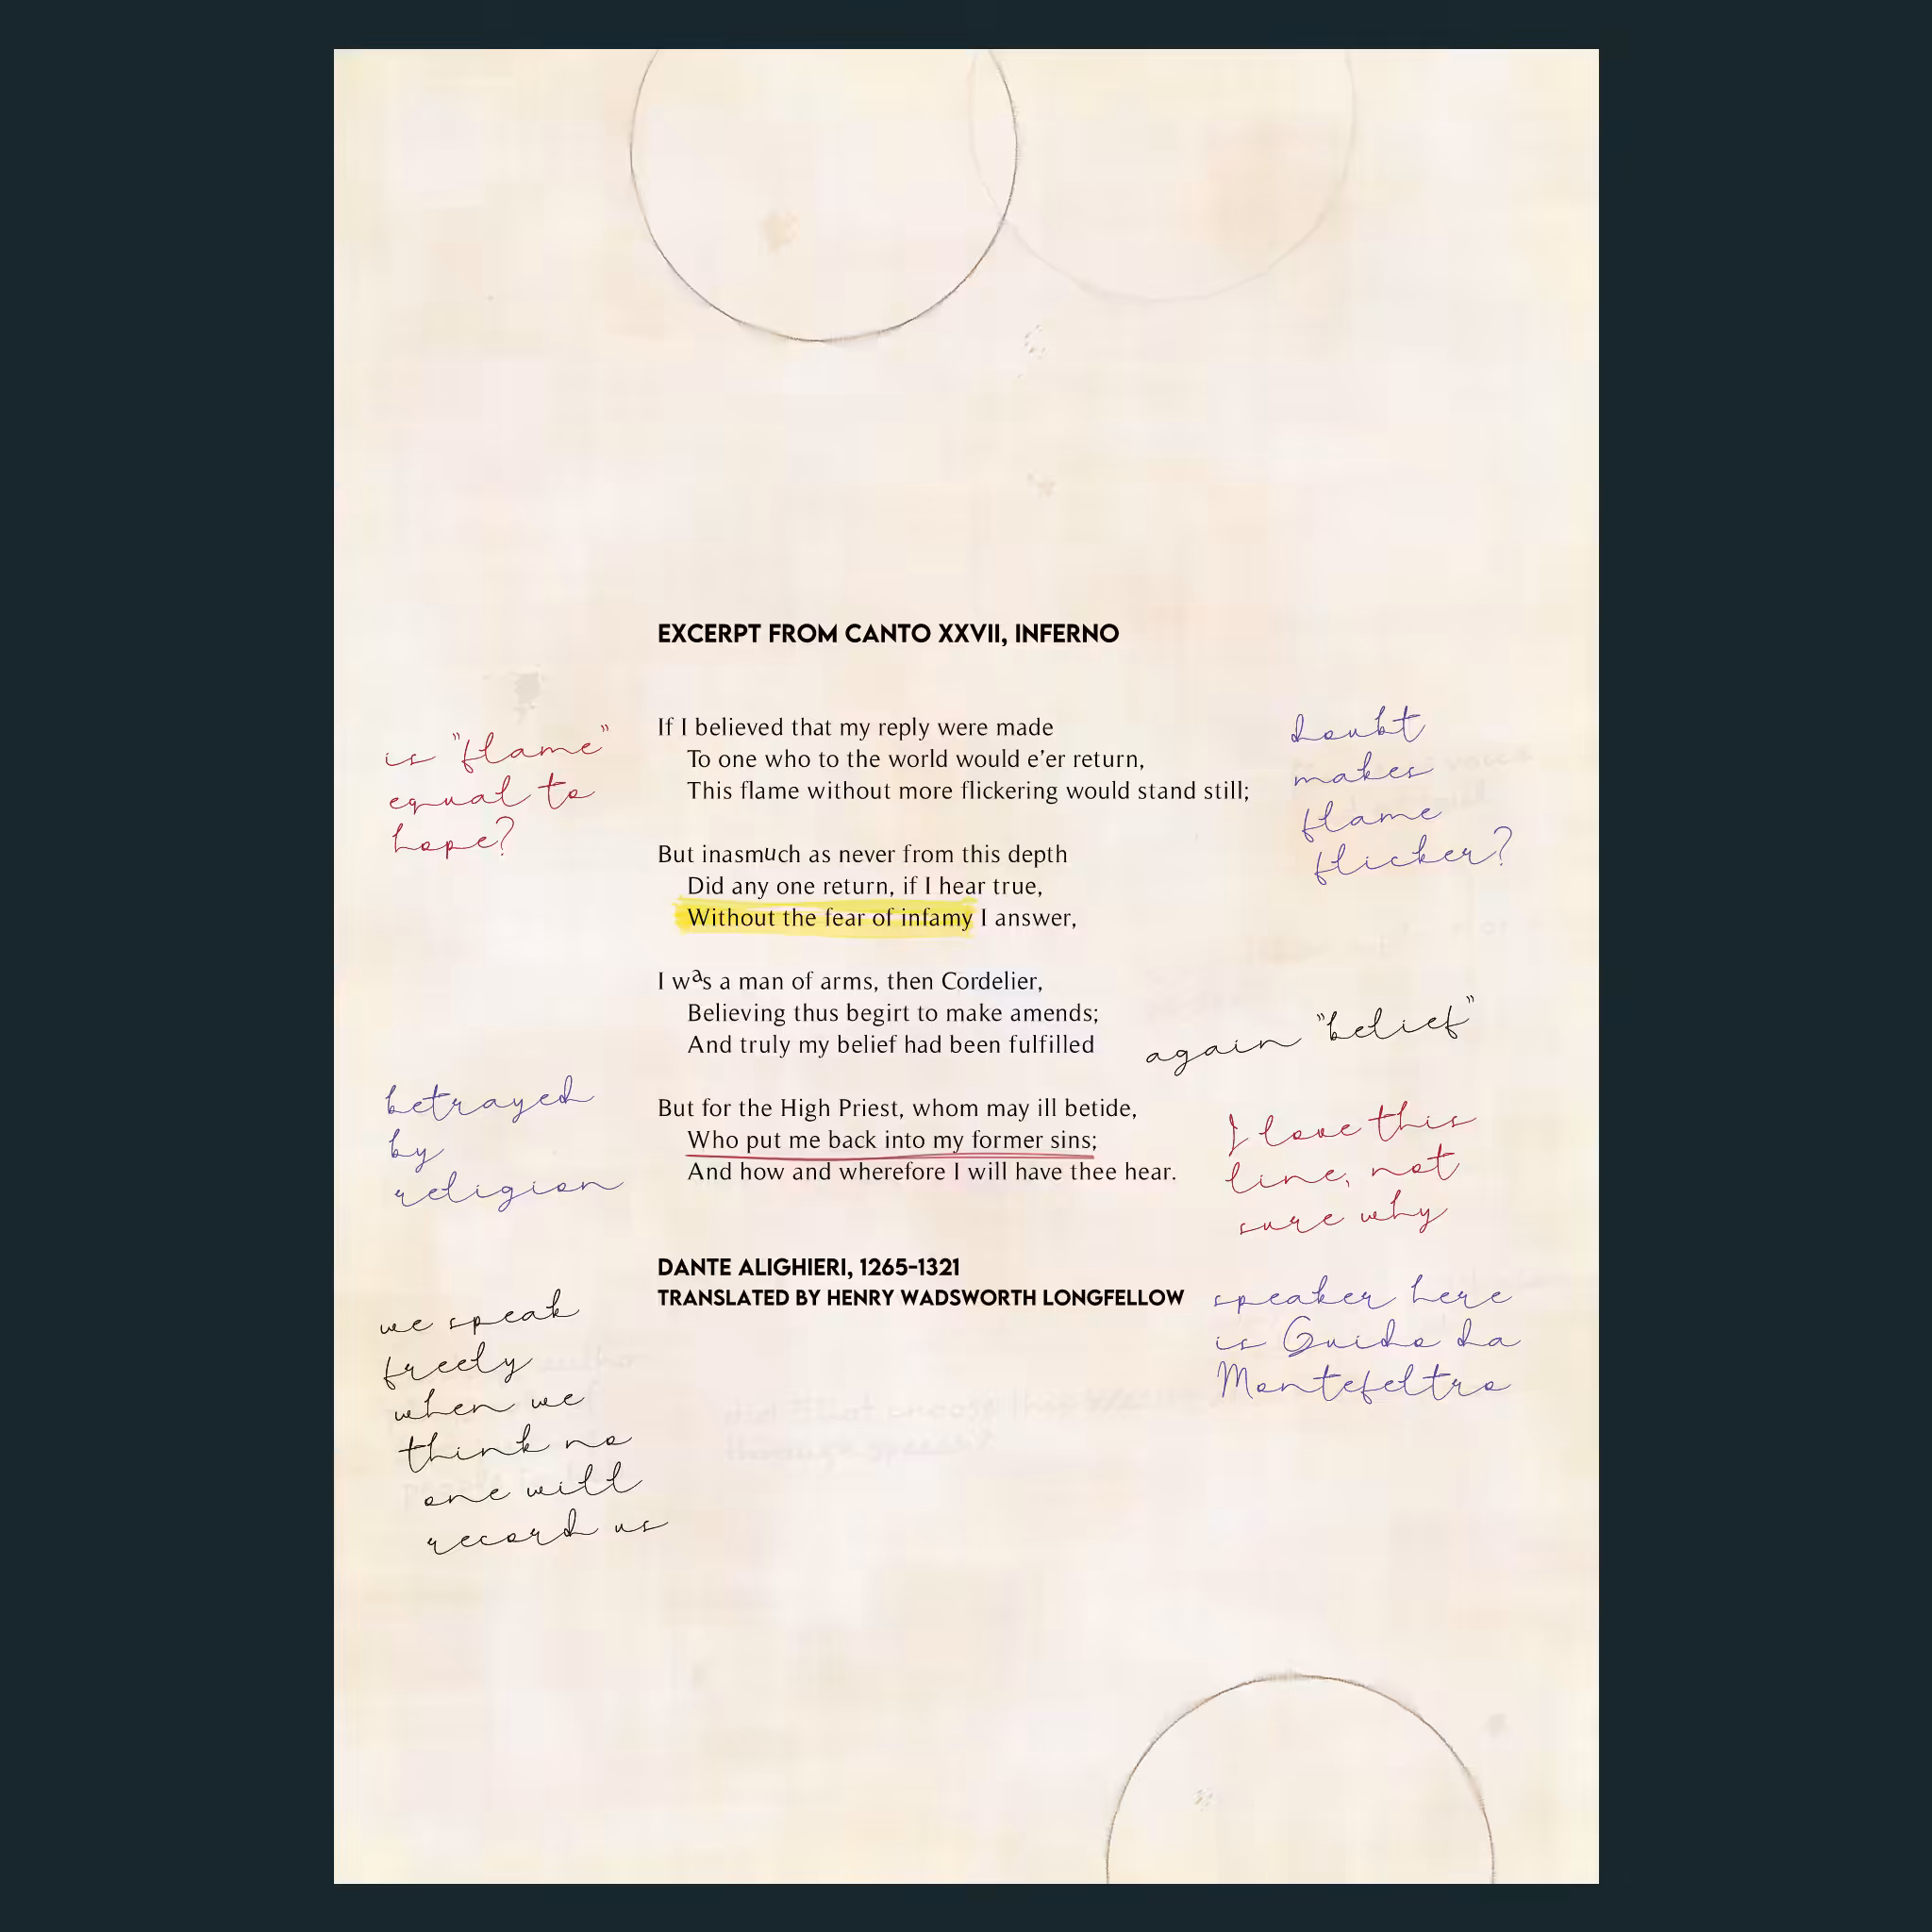 EXCERPT FROM CANTO XXVII, INFERNO
If I believed that my reply were made
To one who to the world would e’er return,
This flame without more flickering would stand still;
But inasmuch as never from this depth
Did any one return, if I hear true,
Without the fear of infamy I answer,
I was a man of arms, then Cordelier,
Believing thus begirt to make amends;
And truly my belief had been fulfilled
But for the High Priest, whom may ill betide,
Who put me back into my former sins;
And how and wherefore I will have thee hear.
DANTE ALIGHIERI, 1265-1321
TRANSLATED BY HENRY WADSWORTH LONGFELLOW
is "flame"
equal to
hope?
betrayed
by
religion
we speak
freely
when we
think no
one will
record us
doubt
makes
flame
flicker?
again "belief"
I love this
line, not
sure why
speaker here
is Guido da
Montefeltro